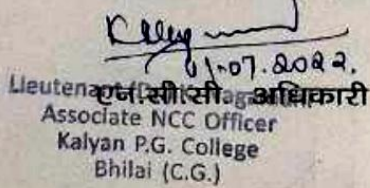 01.07.2022.
Lieutenant
एन.सी.सी. अधिकारी
Associate NCC Officer
Kalyan P.G. College
Bhilai (C.G.)